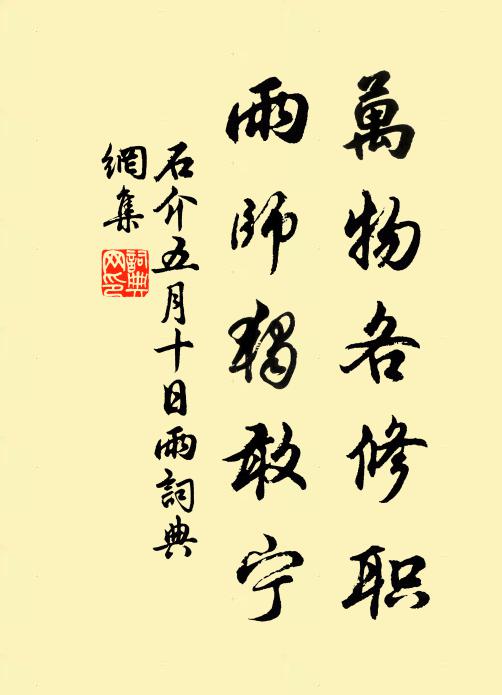 萬物各修职
雨師獨敢宁
石介五月十日雨詞典
網集
詞典
网印